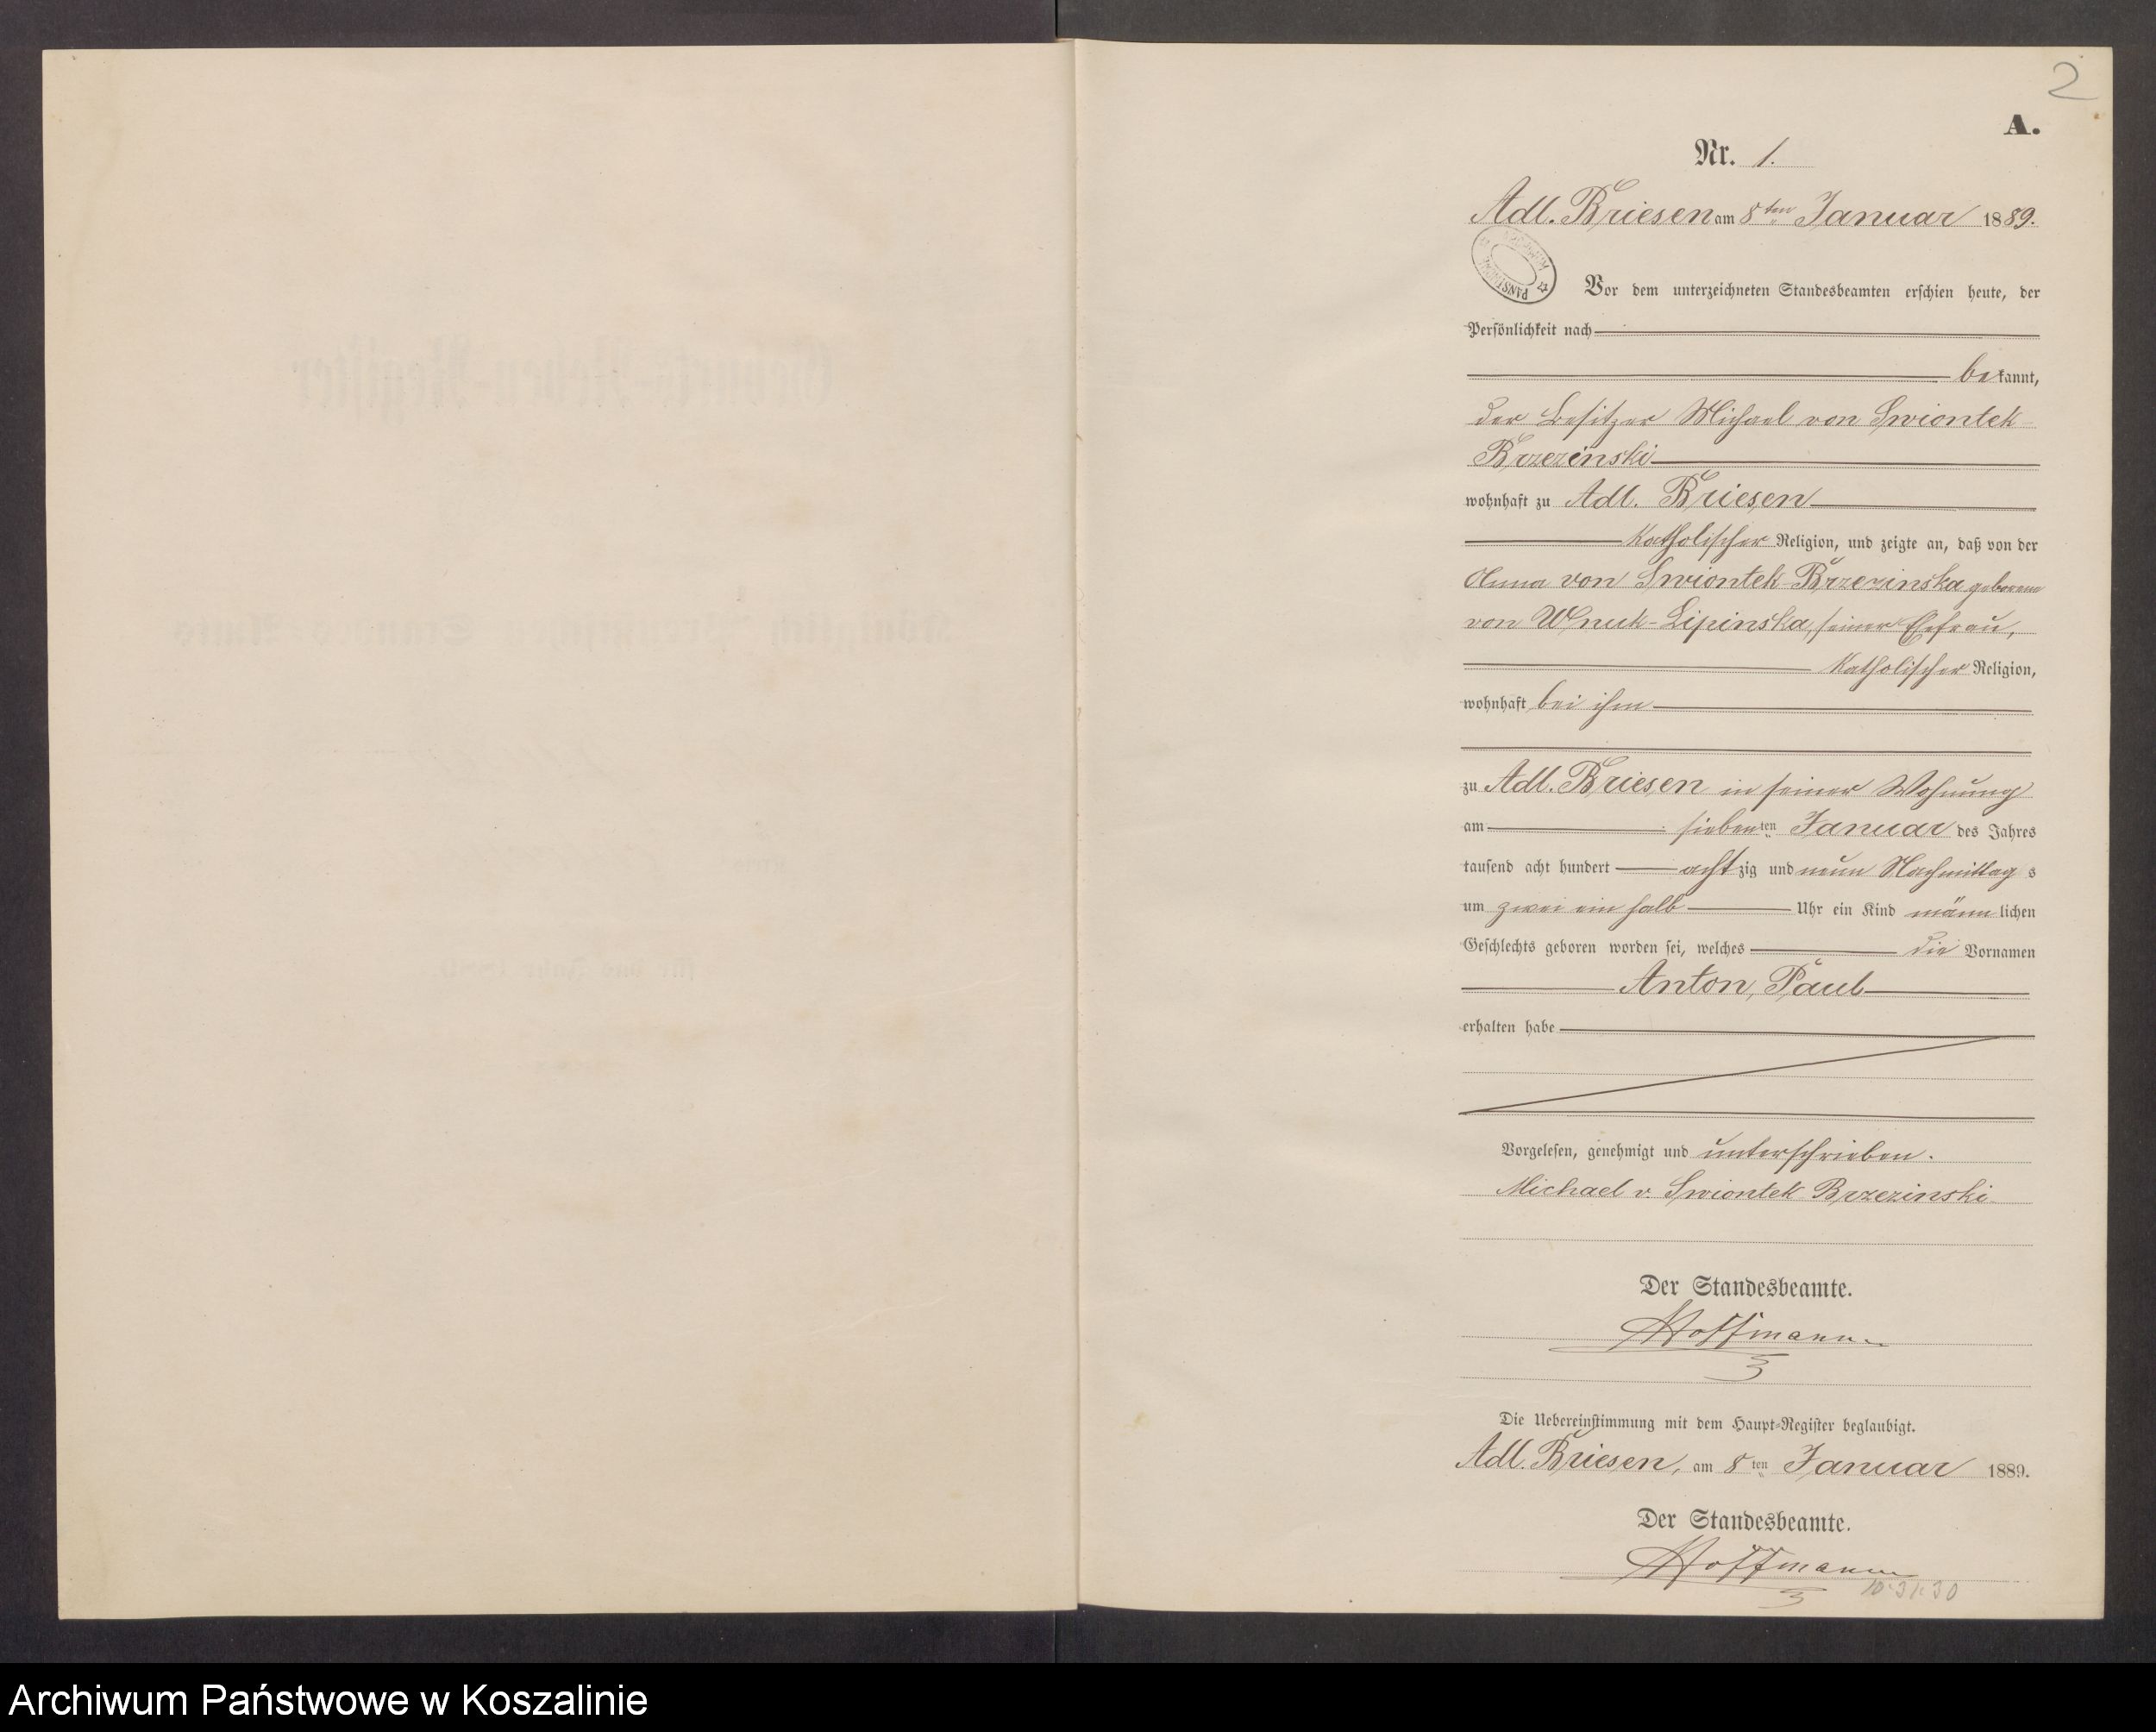 2
A.
Nr. 1.
Adl. Briesen am 8ten Januar 1889.
Vor dem unterzeichneten Standesbeamten erschien heute, der
Persönlichkeit nach
bekannt,
der Besitzer Michael von Swiontek-
Brzezinski
wohnhaft zu Adl. Briesen
katholischer Religion, und zeigte an, daß von der
Anna von Swiontek-Brzezinska geborene
von Wnuk-Lipinska, seiner Ehefrau,
katholischer Religion,
wohnhaft bei ihm
zu Adl. Briesen in seiner Wohnung
am siebenten Januar des Jahres
tausend acht hundert achtzig und neun Nachmittags
um zwei ein halb Uhr ein Kind männlichen
Geschlechts geboren worden sei, welches die Vornamen
Anton, Paul
erhalten habe
Vorgelesen, genehmigt und unterschrieben.
Michael v. Swiontek Brzezinski
Der Standesbeamte.
Hoffmann
Die Uebereinstimmung mit dem Haupt-Register beglaubigt.
Adl. Briesen, am 8ten Januar 1889.
Der Standesbeamte.
Hoffmann
Archiwum Państwowe w Koszalinie